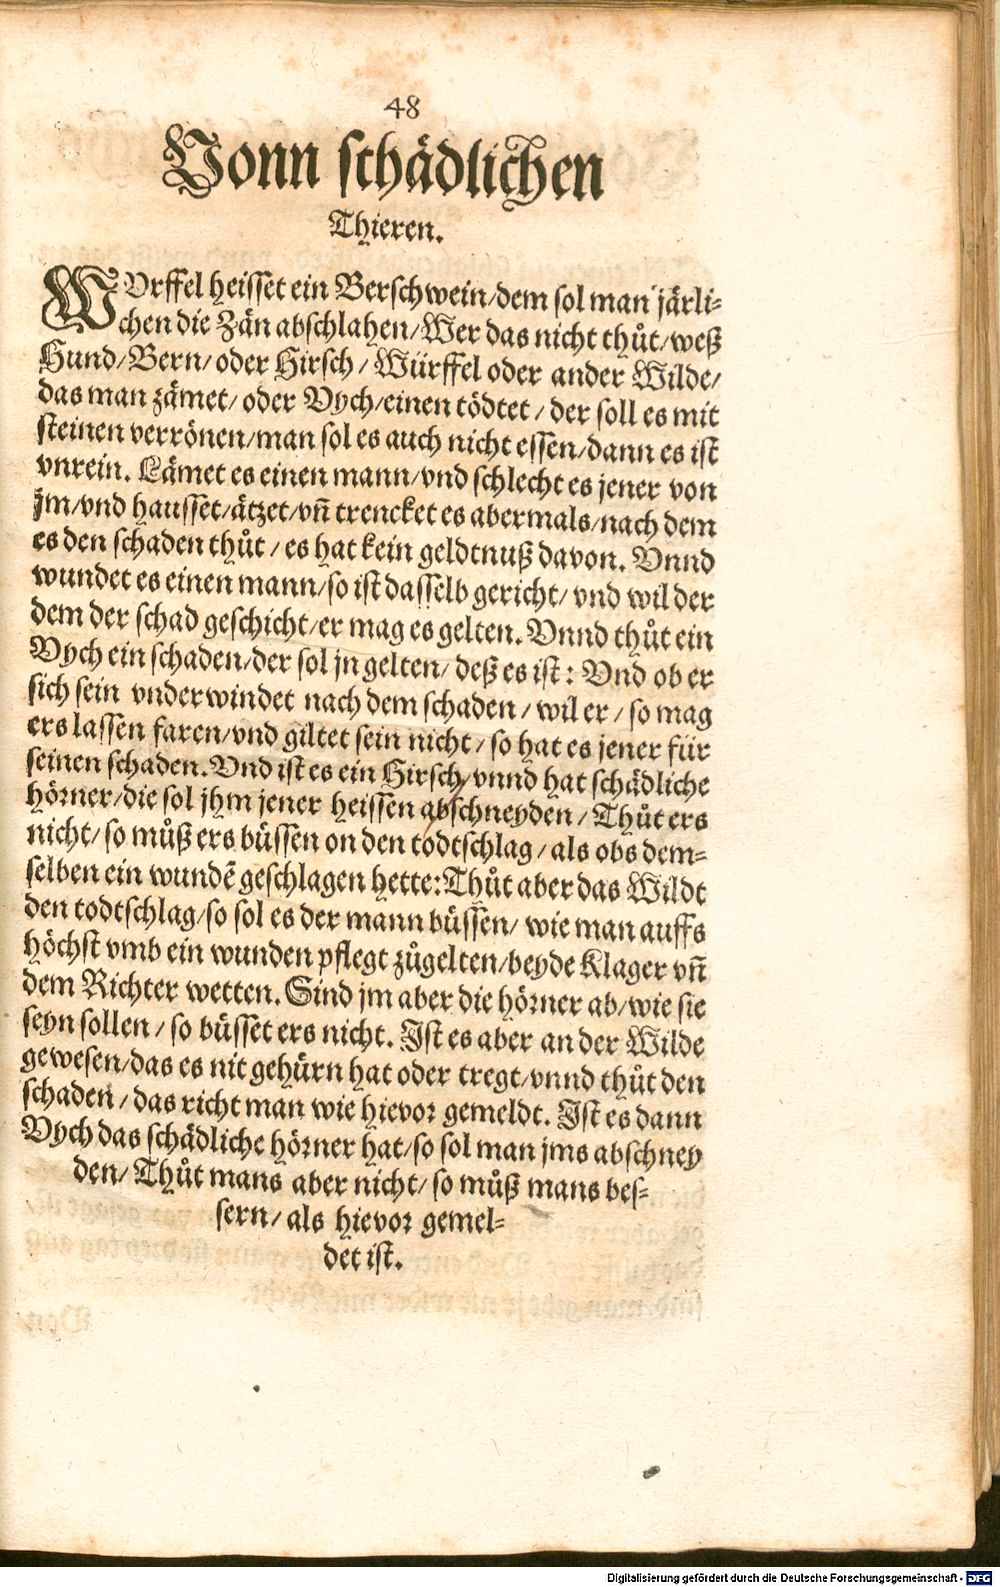 48
Vonn schädlichen
Thieren.
WVrffel heisset ein Berschwein/dem sol man järli-
chen die Zän abschlahen/Wer das nicht thůt/weß
Hund/Bern/oder Hirsch/Würffel oder ander Wilde/
das man zämet/oder Vych/einen tödtet/der soll es mit
steinen verrönen/man sol es auch nicht essen/dann es ist
vnrein. Lämet es einen mann/vnd schlecht es jener von
jm/vnd hausset/ätzet/vñ trencket es abermals/nach dem
es den schaden thůt/es hat kein geldtnuß davon. Vnnd
wundet es einen mann/so ist dasselb gericht/vnd wil der
dem der schad geschicht/er mag es gelten. Vnnd thůt ein
Vych ein schaden/der sol jn gelten/deß es ist: Vnd ob er
sich sein vnderwindet nach dem schaden/wil er/so mag
ers lassen faren/vnd giltet sein nicht/so hat es jener für
seinen schaden. Vnd ist es ein Hirsch/vnnd hat schädliche
hörner/die sol jhm jener heissen abschneyden/Thůt ers
nicht/so můß ers büssen on den todtschlag/als obs dem-
selben ein wundẽ geschlagen hette: Thůt aber das Wildt
den todtschlag/so sol es der mann büssen/wie man auffs
höchst vmb ein wunden pflegt zůgelten/beyde Klager vñ
dem Richter wetten. Sind jm aber die hörner ab/wie sie
seyn sollen/so büsset ers nicht. Ist es aber an der Wilde
gewesen/das es nit gehürn hat oder tregt/vnnd thůt den
schaden/das richt man wie hievor gemeldt. Ist es dann
Vych das schädliche hörner hat/so sol man jms abschney
den/Thůt mans aber nicht/so můß mans bes-
sern/als hievor gemel-
det ist.
Digitalisierung gefördert durch die Deutsche Forschungsgemeinschaft - DFG